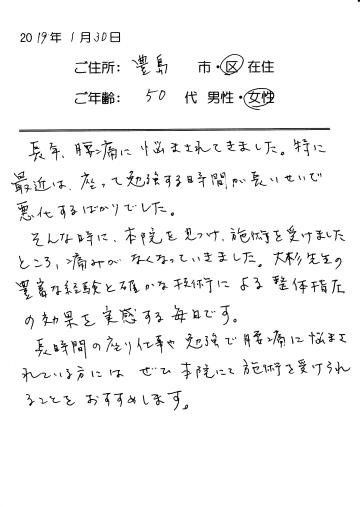 2019年1月30日
ご住所: 豊島 市・区 在住
ご年齢: 50 代 男性・女性
長年、腰痛に悩まされてきました。特に
最近は、座って勉強する時間が長いせいで
悪化するばかりでした。
そんな時に、本院を見つけ、施術を受けました
ところ、痛みがなくなっていきました。大杉先生の
豊富な経験と確かな技術による整体指圧
の効果を実感する毎日です。
長時間の座り仕事や勉強で腰痛に悩まさ
れている方には ぜひ本院にて施術を受けられ
ることをおすすめします。